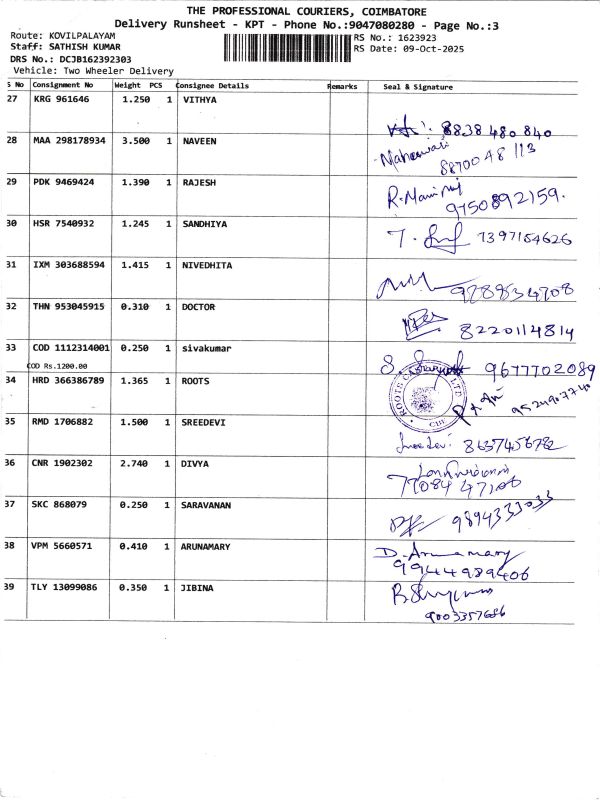 THE PROFESSIONAL COURIERS, COIMBATORE
Delivery Runsheet - KPT - Phone No.:9047080280 - Page No.:3
Route: KOVILPALAYAM RS No.: 1623923
Staff: SATHISH KUMAR RS Date: 09-Oct-2025
DRS No.: DCJB162392303
Vehicle: Two Wheeler Delivery
S No Consignment No Weight PCS Consignee Details Remarks Seal & Signature
27 KRG 961646 1.250 1 VITHYA
8838 480 840
28 MAA 298178934 3.500 1 NAVEEN
Maheswari
8870048113
29 PDK 9469424 1.390 1 RAJESH
9750892159.
30 HSR 7540932 1.245 1 SANDHIYA
7397154626
31 IXM 303688594 1.415 1 NIVEDHITA
9789834708
32 THN 953045915 0.310 1 DOCTOR
8220114814
33 COD 1112314001 0.250 1 sivakumar
9677702089
COD Rs.1200.00
34 HRD 366386789 1.365 1 ROOTS
ROOTS LTD
CBE
35 RMD 1706882 1.500 1 SREEDEVI
Sreedevi 8637456782
36 CNR 1902302 2.740 1 DIVYA
77084 47106
37 SKC 868079 0.250 1 SARAVANAN
9894333033
38 VPM 5660571 0.410 1 ARUNAMARY
D. Arunamary
9944989406
39 TLY 13099086 0.350 1 JIBINA
9003357686